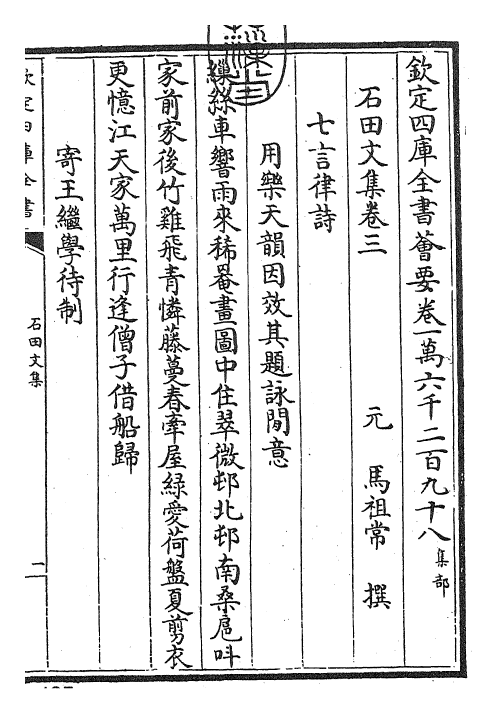 欽定四庫全書薈要卷一萬六千二百九十八集部
石田文集卷三 元 馬祖常 撰
七言律詩
用樂天韻因效其題詠閒意
繅絲車響雨來稀罨畫圖中住翠微邨北邨南桑扈呌
家前家後竹雞飛青憐藤蔓春牽屋緑愛荷盤夏剪衣
更憶江天家萬里行逢僧子借船歸
寄王繼學待制
欽定四庫全書
石田文集
二